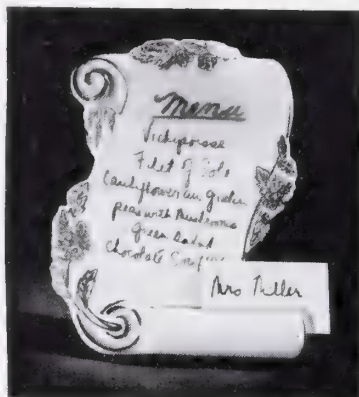 Menu
Vichyssoise
Filet of Sole
Cauliflower au gratin
peas with Mushrooms
Green Salad
Chocolate
Mrs Miller